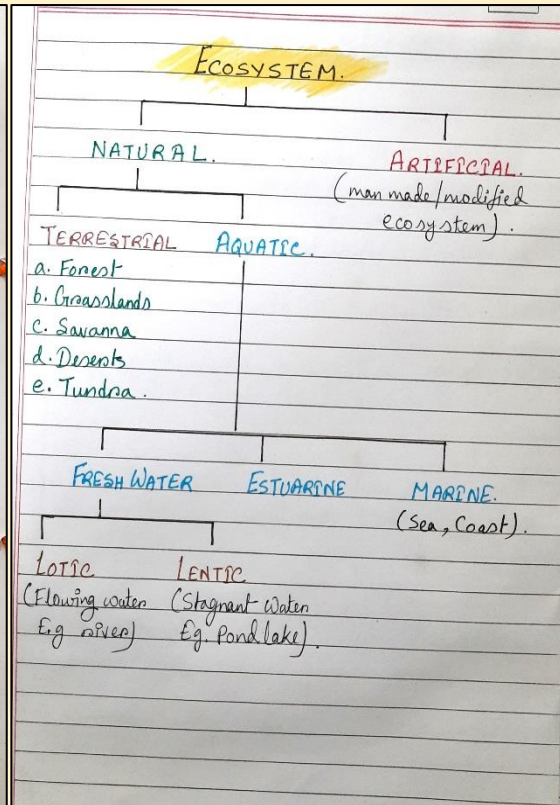 ECOSYSTEM.
NATURAL.
ARTIFICIAL.
(man made/modified
ecosystem).
TERRESTRIAL
AQUATIC.
a. Forest
b. Grasslands
c. Savanna
d. Deserts
e. Tundra.
FRESH WATER
ESTUARINE
MARINE.
(Sea, Coast).
LOTIC
(Flowing water
E.g river)
LENTIC
(Stagnant Water
Eg. Pond lake).